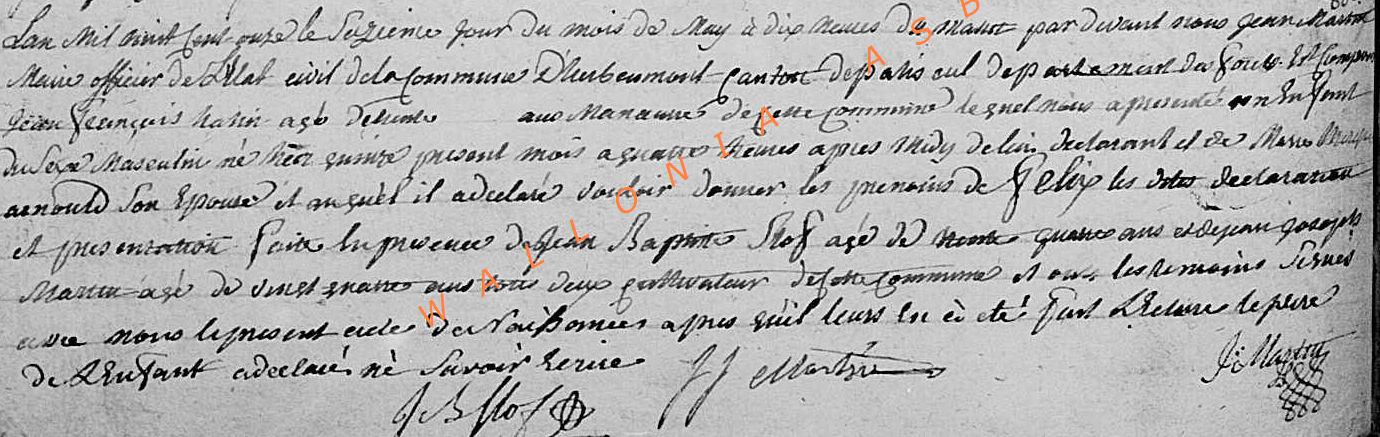 Lan Mil huit Cent onze le Sezieme Jour du mois de May à dix heures du Matin par devant nous Jean Martin
Maire officier de L'Etat civil de la Commune D'herbeumont Canton de paliseul departement des forets Est Comparu
Jean françois hatin agé de trente ans Manœuvre de Cette Commune le quel nous a presenté un Enfant
du Sexe Masculin né hier quinze present mois a quatre heures apres Midy de lui declarant et de Marie
arnould Son Epouse et auquel il a declaré vouloir donner les prenoins de Felix les dites declaration
et presentation faite En presence de Jean Baptiste Slof agé de trente quatre ans et de jean joseph
Martin agé de vingt quatre ans tous deux Cultivateur de Cette Commune et ont les temoins Signés
avec nous le present acte de Naissances apres qu'il leurs En à été fait Lecture le pere
de L'Enfant a declaré né Savoir Ecrire
JJ Martin
J: Martin
J B Slof
WALLONIA ASB